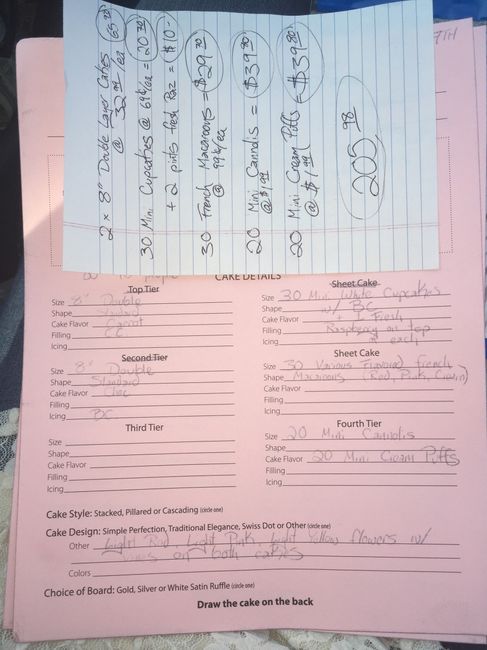 2 x 8" Double Layer Cakes
@ 32.99/ea
30 Mini Cupcakes @ 69¢/ea = 20.70
+ 2 pints fresh Raz = $10-
30 French Macaroons = $29.70
@ 99¢/ea
20 Mini Cannolis = $39.80
@ $1.99
20 Mini Cream Puffs = $39.80
@ $1.99
205.98
CAKE DETAILS
Top Tier
Size 8" Double
Shape Standard
Cake Flavor Carrot
Filling C.C.
Icing
Sheet Cake
Size 30 Mini White Cupcakes
Shape w/ BC
Cake Flavor + Fresh
Filling Raspberry on top
Icing each
Second Tier
Size 8" Double
Shape Standard
Cake Flavor Choc
Filling
Icing BC
Sheet Cake
Size 30 Various Flavored French
Shape Macaroons (Red, Pink, Cream)
Cake Flavor
Filling
Icing
Third Tier
Size
Shape
Cake Flavor
Filling
Icing
Fourth Tier
Size 20 Mini Cannolis
Shape
Cake Flavor 20 Mini Cream Puffs
Filling
Icing
Cake Style: Stacked, Pillared or Cascading (circle one)
Cake Design: Simple Perfection, Traditional Elegance, Swiss Dot or Other (circle one)
Other Light Red, Light Pink, Light Yellow flowers w/
vines on both cakes
Colors
Choice of Board: Gold, Silver or White Satin Ruffle (circle one)
Draw the cake on the back